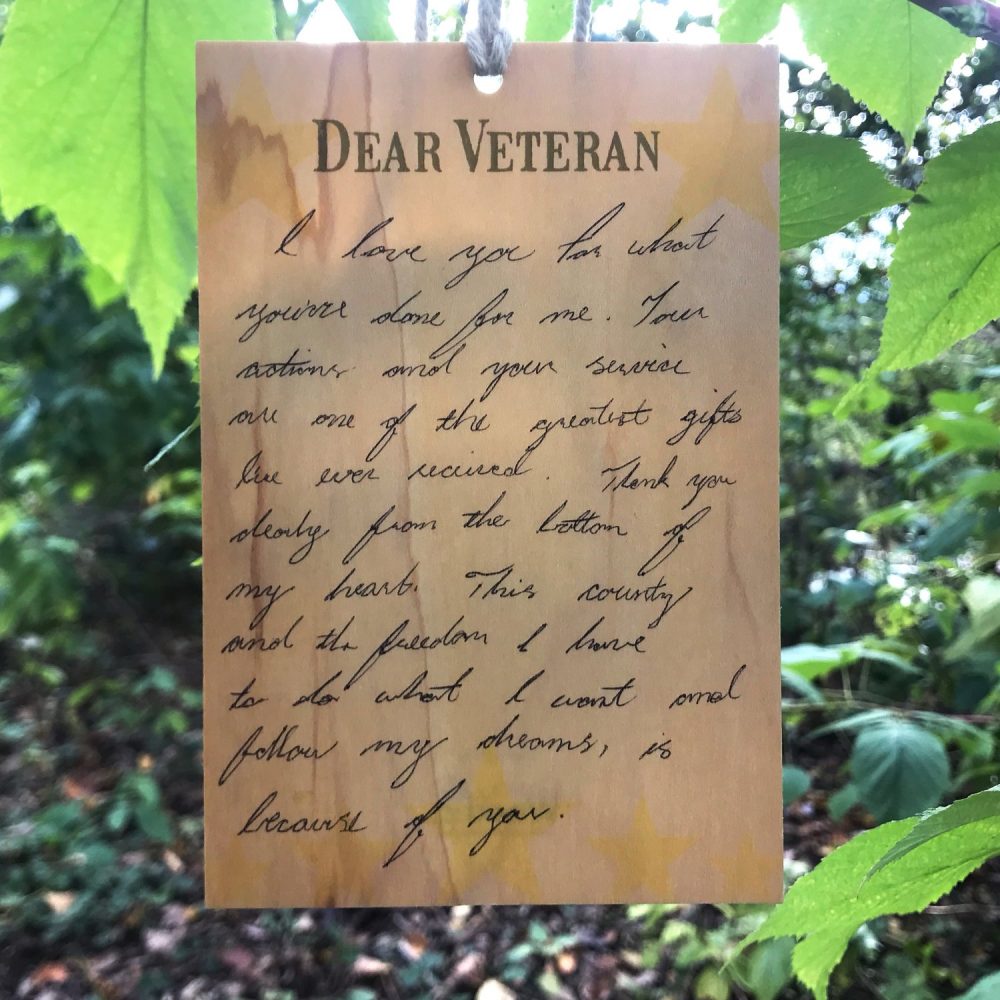 DEAR VETERAN
I love you for what
you've done for me. Your
actions and your service
are one of the greatest gifts
I've ever received. Thank you
dearly from the bottom of
my heart. This country
and the freedom I have
to do what I want and
follow my dreams, is
because of you.